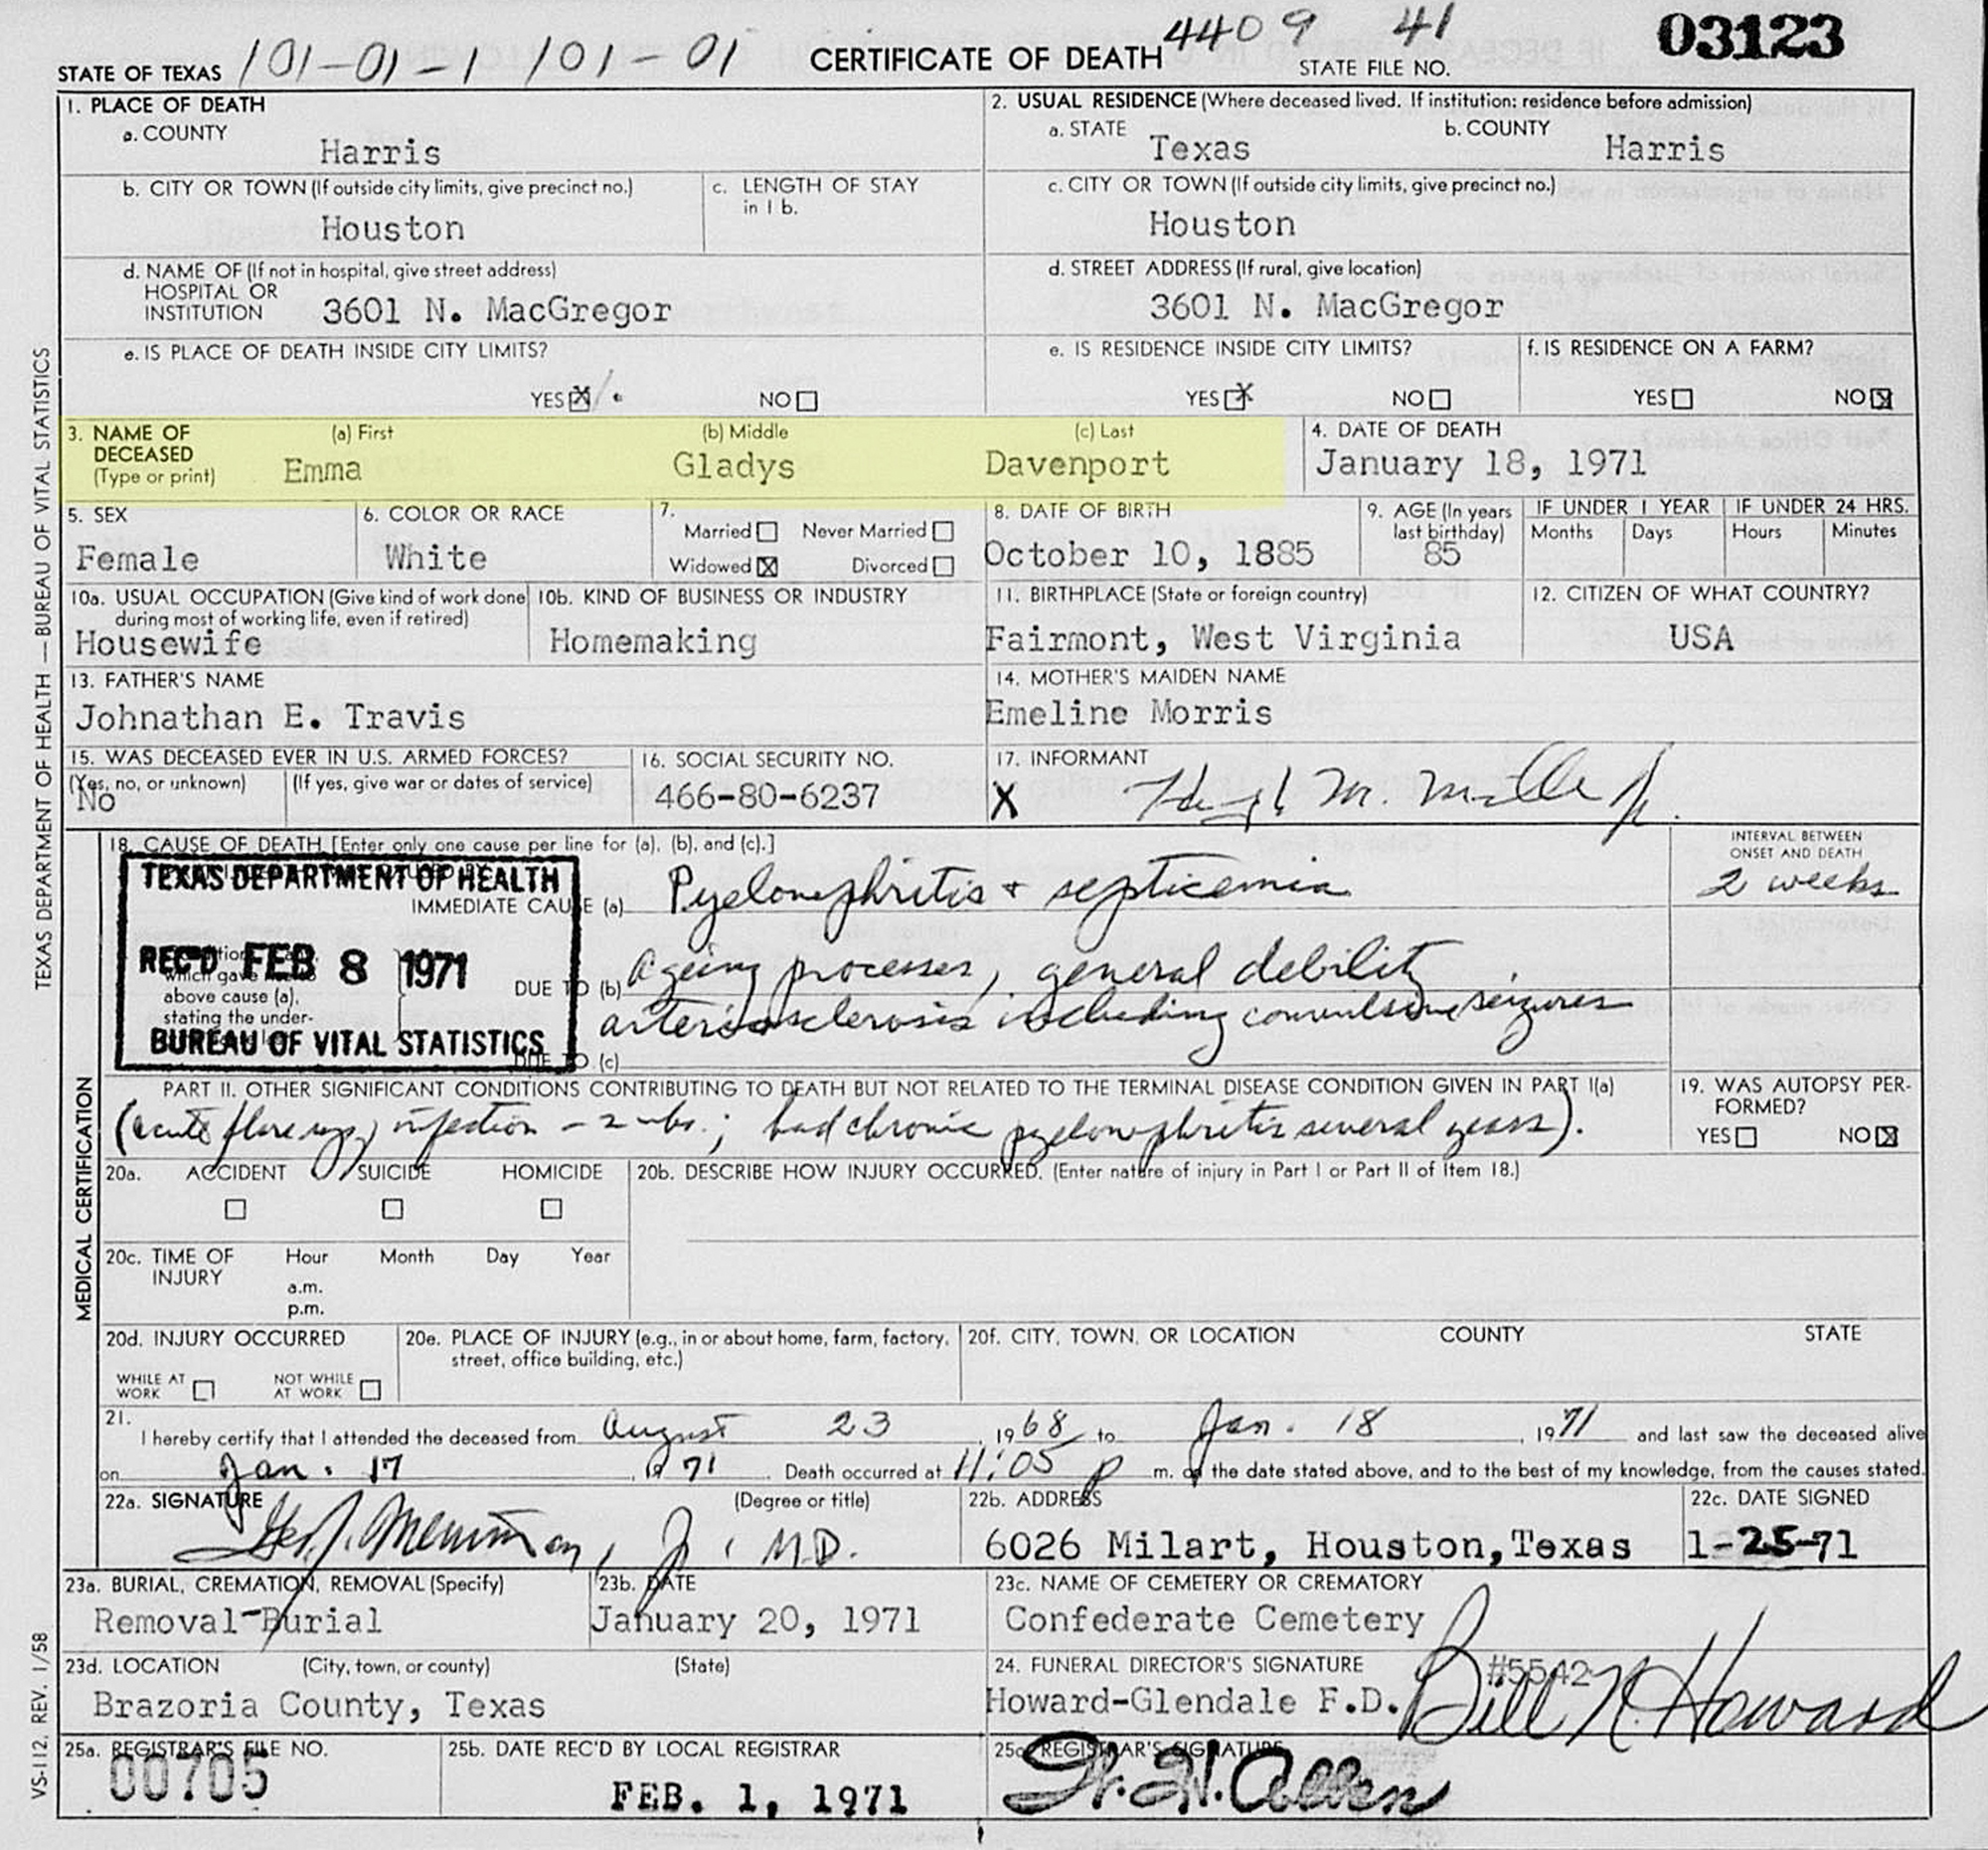 STATE OF TEXAS 101-01-1 101-01 CERTIFICATE OF DEATH 4409 41 STATE FILE NO. 03123
1. PLACE OF DEATH
a. COUNTY
Harris
2. USUAL RESIDENCE (Where deceased lived. If institution: residence before admission)
a. STATE Texas b. COUNTY Harris
b. CITY OR TOWN (If outside city limits, give precinct no.)
Houston
c. LENGTH OF STAY in 1 b.
c. CITY OR TOWN (If outside city limits, give precinct no.)
Houston
d. NAME OF (If not in hospital, give street address)
HOSPITAL OR
INSTITUTION 3601 N. MacGregor
d. STREET ADDRESS (If rural, give location)
3601 N. MacGregor
e. IS PLACE OF DEATH INSIDE CITY LIMITS?
YES X NO
e. IS RESIDENCE INSIDE CITY LIMITS?
YES X NO
f. IS RESIDENCE ON A FARM?
YES NO X
3. NAME OF DECEASED (Type or print)
(a) First (b) Middle (c) Last
Emma Gladys Davenport
4. DATE OF DEATH
January 18, 1971
5. SEX
Female
6. COLOR OR RACE
White
7.
Married Never Married
Widowed X Divorced
8. DATE OF BIRTH
October 10, 1885
9. AGE (In years last birthday)
85
IF UNDER 1 YEAR IF UNDER 24 HRS.
Months Days Hours Minutes
10a. USUAL OCCUPATION (Give kind of work done
during most of working life, even if retired)
Housewife
10b. KIND OF BUSINESS OR INDUSTRY
Homemaking
11. BIRTHPLACE (State or foreign country)
Fairmont, West Virginia
12. CITIZEN OF WHAT COUNTRY?
USA
13. FATHER'S NAME
Johnathan E. Travis
14. MOTHER'S MAIDEN NAME
Emeline Morris
15. WAS DECEASED EVER IN U.S. ARMED FORCES?
(Yes, no, or unknown) (If yes, give war or dates of service)
No
16. SOCIAL SECURITY NO.
466-80-6237
17. INFORMANT
X M.
18. CAUSE OF DEATH [Enter only one cause per line for (a), (b), and (c).]
INTERVAL BETWEEN
ONSET AND DEATH
TEXAS DEPARTMENT OF HEALTH
REC'D FEB 8 1971
BUREAU OF VITAL STATISTICS
IMMEDIATE CAUSE (a) Pyelonephritis + septicemia 2 weeks
which gave
above cause (a),
stating the under-
DUE TO (b) Ageing processes, general debility
arteriosclerosis including convulsive seizures
DUE TO (c)
PART II. OTHER SIGNIFICANT CONDITIONS CONTRIBUTING TO DEATH BUT NOT RELATED TO THE TERMINAL DISEASE CONDITION GIVEN IN PART I(a)
(acute flare up, infection - 2 wks.; had chronic pyelonephritis several years).
19. WAS AUTOPSY PER-
FORMED?
YES NO X
20a. ACCIDENT SUICIDE HOMICIDE
20b. DESCRIBE HOW INJURY OCCURRED. (Enter nature of injury in Part I or Part II of Item 18.)
20c. TIME OF INJURY Hour Month Day Year
a.m.
p.m.
20d. INJURY OCCURRED
WHILE AT WORK NOT WHILE AT WORK
20e. PLACE OF INJURY (e.g., in or about home, farm, factory,
street, office building, etc.)
20f. CITY, TOWN, OR LOCATION COUNTY STATE
21.
I hereby certify that I attended the deceased from August 23, 1968 to Jan. 18, 1971 and last saw the deceased alive
on Jan. 17, 1971. Death occurred at 11:05 p m. on the date stated above, and to the best of my knowledge, from the causes stated.
22a. SIGNATURE (Degree or title)
Jr., M.D.
22b. ADDRESS
6026 Milart, Houston, Texas
22c. DATE SIGNED
1-25-71
23a. BURIAL, CREMATION, REMOVAL (Specify)
Removal-Burial
23b. DATE
January 20, 1971
23c. NAME OF CEMETERY OR CREMATORY
Confederate Cemetery
23d. LOCATION (City, town, or county) (State)
Brazoria County, Texas
24. FUNERAL DIRECTOR'S SIGNATURE #5542
Howard-Glendale F.D. Bill N. Howard
25a. REGISTRAR'S FILE NO.
00705
25b. DATE REC'D BY LOCAL REGISTRAR
FEB. 1, 1971
25c. REGISTRAR'S SIGNATURE
TEXAS DEPARTMENT OF HEALTH — BUREAU OF VITAL STATISTICS
MEDICAL CERTIFICATION
VS-112, REV. 1/58